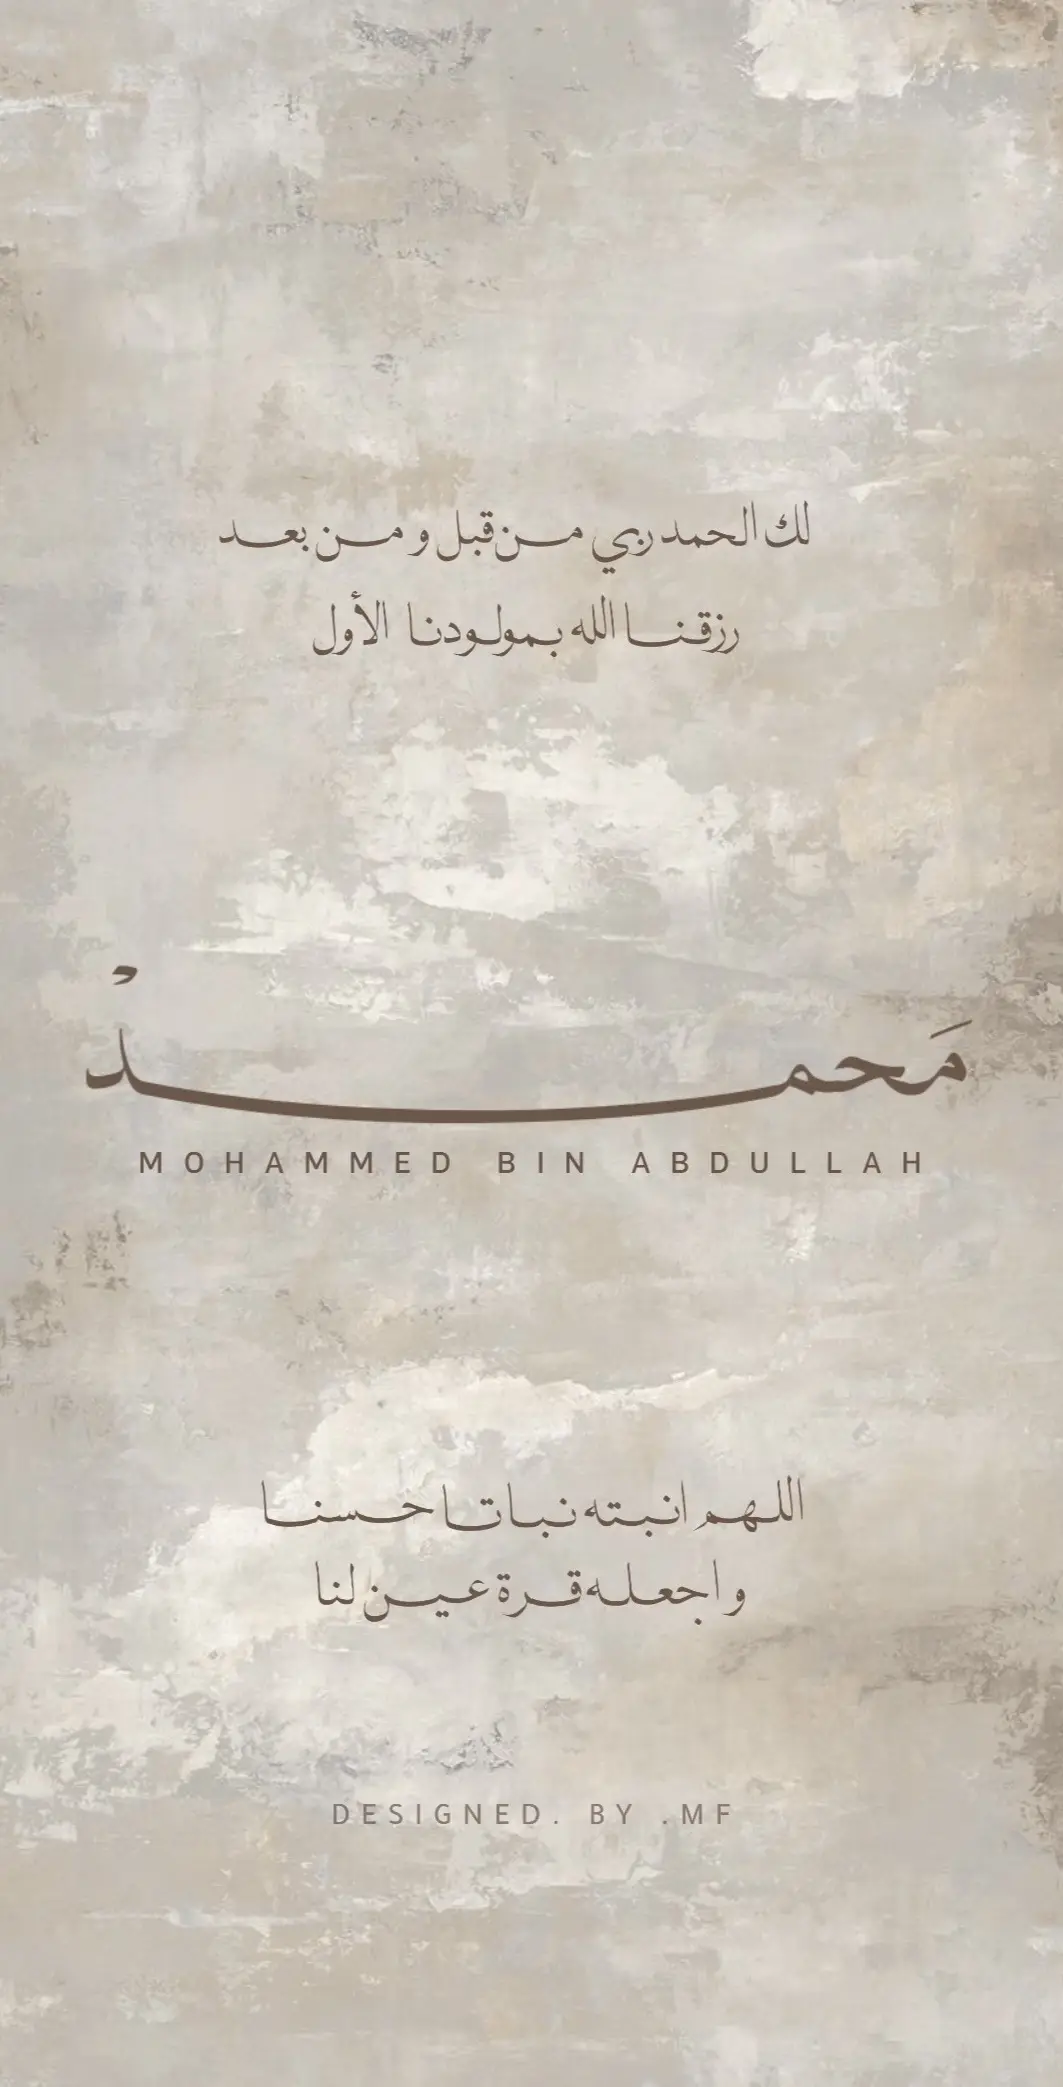 لك الحمد ربي من قبل و من بعد
رزقنا الله بمولودنا الأول
مَحمدْ
MOHAMMED BIN ABDULLAH
اللهم انبته نباتا حسنا
و اجعله قرة عين لنا
DESIGNED. BY .MF